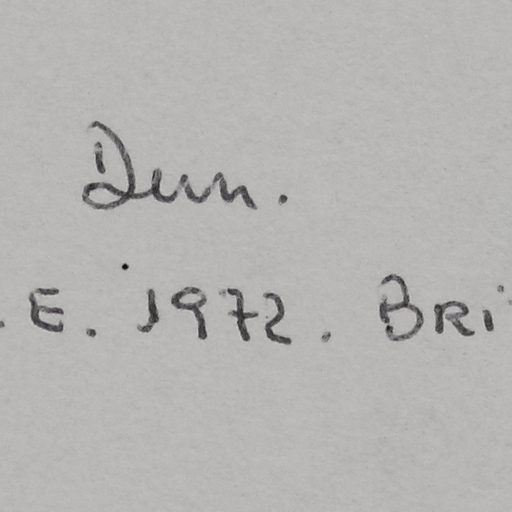 Dum.
. E. 1972. BRI